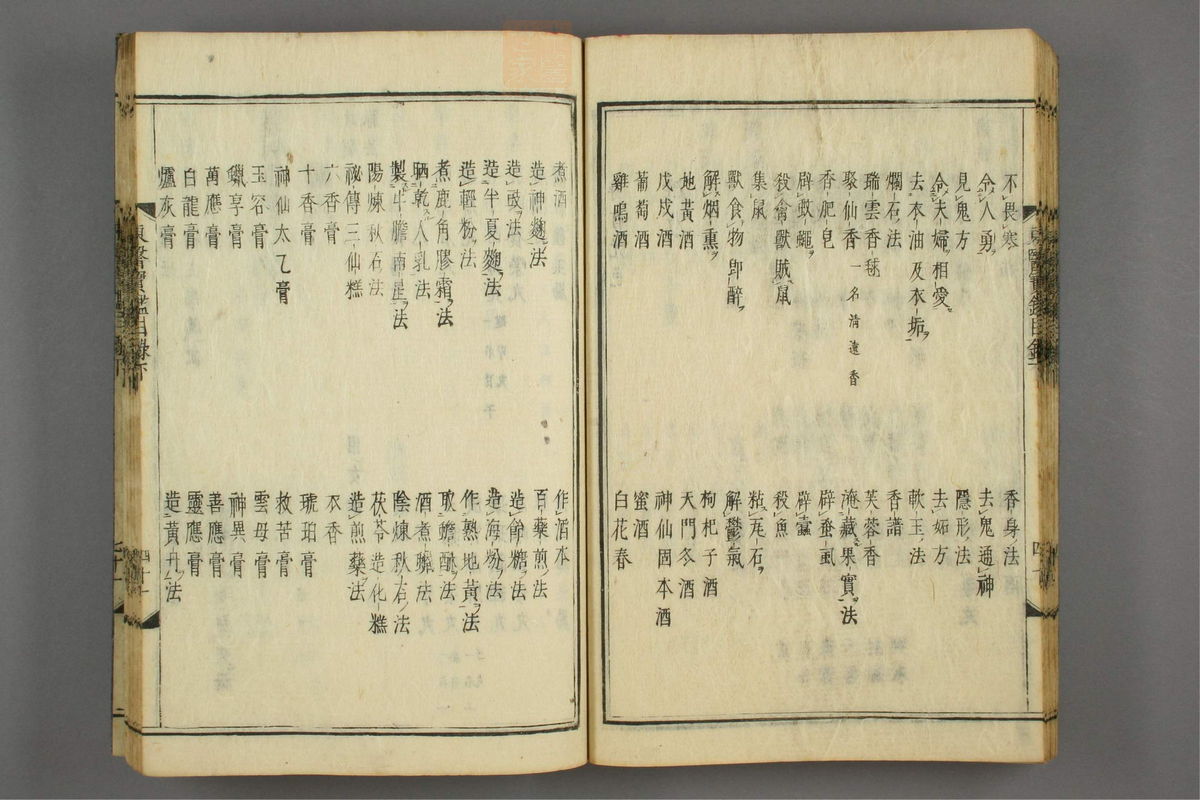 不畏寒 香身法
令人勇 去鬼通神
見鬼方 隱形法
令夫婦相愛 去妬方
去衣油及衣垢 軟玉法
爛石法 香譜
瑞雲香毬 芙蓉香
聚仙香 一名清遠香 淹藏果實法
香肥皂 辟蚤虱
辟蚊蠅 辟蠹
殺禽獸賊鼠 殺魚
集鼠 粘瓦石
獸食物即醉 解鬱氣
解烟熏 枸杞子酒
地黃酒 天門冬酒
戊戌酒 神仙固本酒
葡萄酒 蜜酒
雞鳴酒 白花春
煮酒 作酒本
造神麴法 百藥煎法
造豉法 造飴糖法
造半夏麴法 造海粉法
造輕粉法 作熟地黃法
煮鹿角膠霜法 取蟾酥法
晒乾人乳法 酒煮蠶法
製牛膽南星法 陰煉秋石法
陽煉秋石法 茯苓造化糕
祕傳三仙糕 造煎藥法
六香膏 衣香
十香膏 琥珀膏
神仙太乙膏 救苦膏
玉容膏 雲母膏
蠟享膏 神異膏
萬應膏 善應膏
白龍膏 靈應膏
爐灰膏 造黃丹法
東醫寶鑑目錄下 四十一